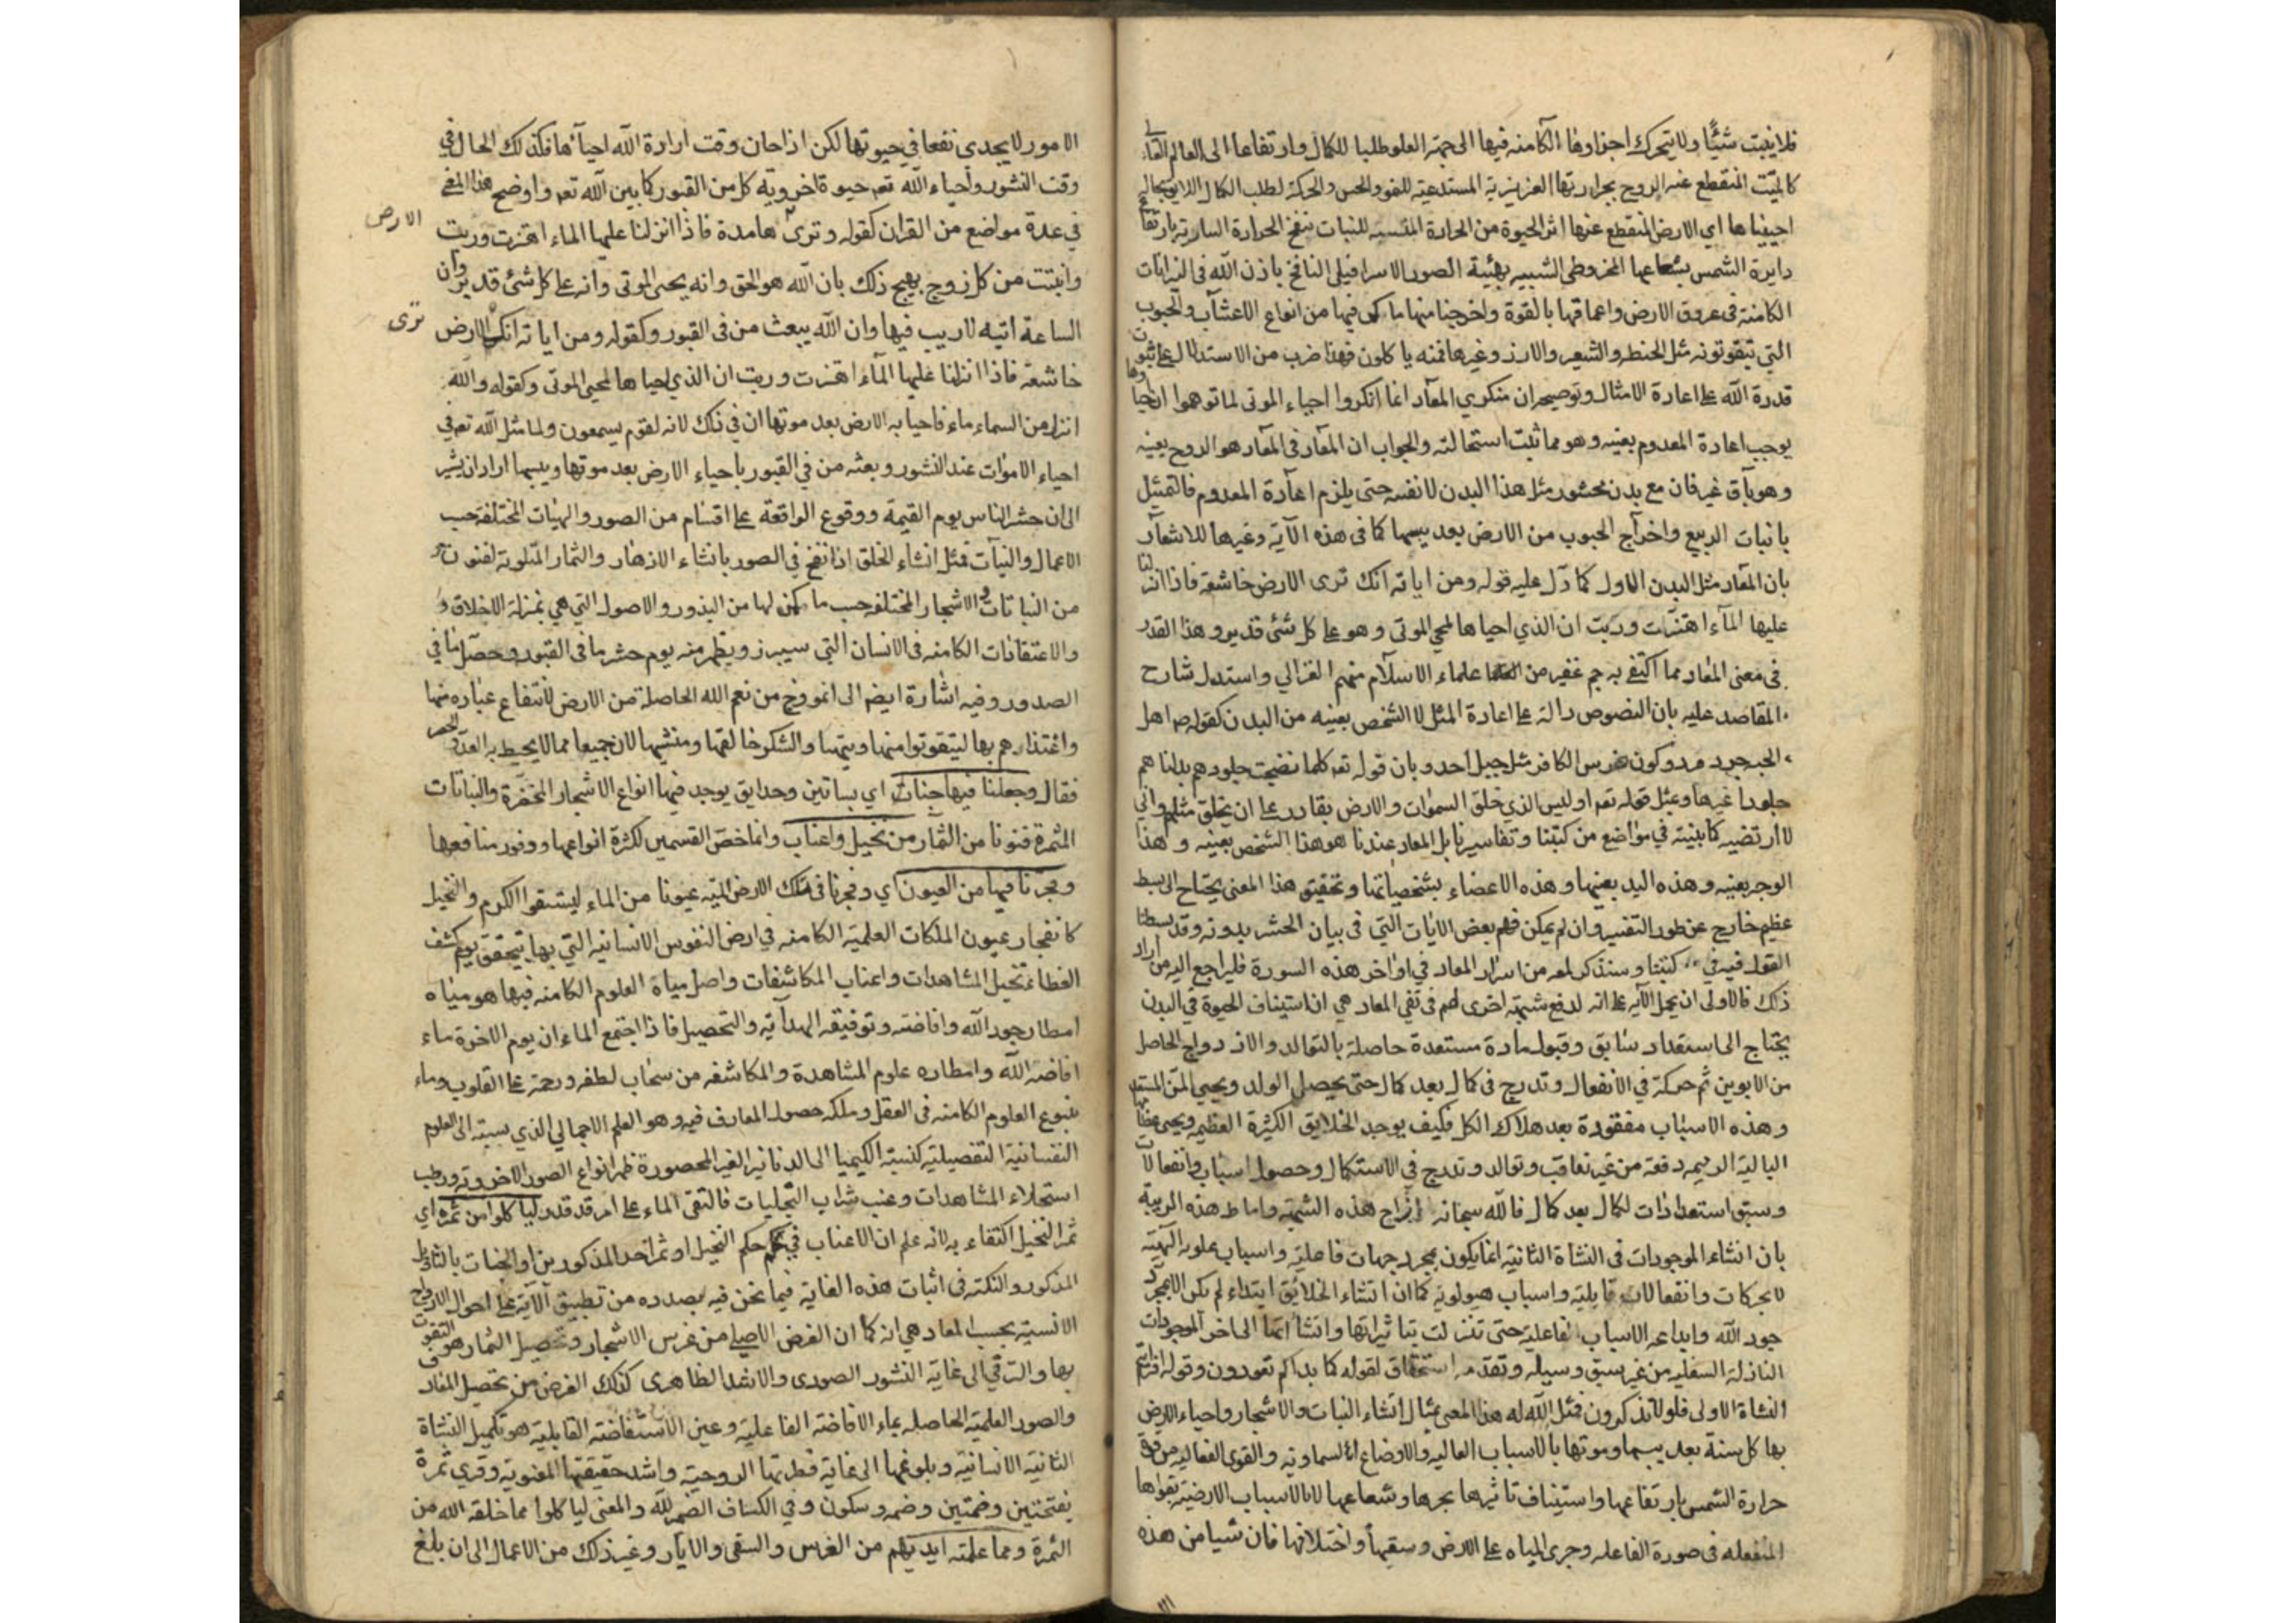 فلا ينبت شيئًا ولا يتحرك اجزاوها الكامنه فيها الى جهة العلو طلبا للكمال وارتفاعا الى العالم
كالميّت المنقطع عنه الروح بحرارتها الغريزية المستدعية للنمو والحس والحركة لطلب الكمال
احييناها اى الارض المنقطع عنها اثر الحيوة من الحرارة للنبات بنفخ الحرارة السارية بارتفاع
دايرة الشمس بشعاعها المخروطى الشبيه بهيئة الصور الاسرافيلى النافخ باذن الله فى
الكامنة فى عروق الارض واعماقها بالقوة واخرجنا منها ما كمن فيها من انواع الاعشاب والحبوب
التى تتقوتونه مثل الحنطه والشعير والارز وغيرها فمنه ياكلون فهذا ضرب من الاستدلال على ثبوت
قدرة الله على اعادة الامثال وتوضيحه ان منكري المعاد انما انكروا احياء الموتى لما توهموا ان احياوها
يوجب اعادة المعدوم بعينه وهو مما ثبت استحالته والجواب ان المعاد فى المعاد هو الروح بعينه
وهو باق غير فان مع بدن محشور مثل هذا البدن لا نفسه حتى يلزم اعادة المعدوم فالتمثيل
بانبات الربيع واخراج الحبوب من الارض بعد يبسها كما فى هذه الآية وغيرها للاشعار
بان المعاد مثل البدن الاول كما دلّ عليه قوله ومن اياته انك ترى الارض خاشعة فاذا انزلنا
عليها المآء اهتزت وربت ان الذي احياها لمحي الموتى وهو على كل شئ قدير وهذا القدر
فى معنى المعاد مما اكتفى به جم غفير من علماء الاسلام منهم الغزالي واستدل شارح
المقاصد عليه بان النصوص دالة على اعادة المثل لا الشخص بعينه من البدن كقوله ص اهل
الجنة جرد مرد وكون ضرس الكافر مثل جبل احد وبان قوله تعه كلما نضجت جلودهم بدلناهم
جلودا غيرها وبمثل قوله تعه اوليس الذي خلق السموات والارض بقادر على ان يخلق مثلهم وانى
لا ارتضيه كما بينته في مواضع من كتبنا وتفاسيرنا بل المعاد عندنا هو هذا الشخص بعينه وهذا
الوجه بعينه وهذه اليد بعينها وهذه الاعضاء بشخصياتها وتحقيق هذا المعنى يحتاج الى بسط
عظيم خارج عن طور التفسير وان لم يمكن فهم بعض الايات التي فى بيان الحشر بدونه وقد بسطنا
القول فيه في كتبنا وسنذكر لمعه من اسرار المعاد في اواخر هذه السورة فليراجع اليه من اراد
ذلك فالاولى ان يحمل الآية على انه لدفع شبهة اخرى لهم فى نفي المعاد هي ان استيناف الحيوة في البدن
يحتاج الى استعداد سابق وقبول مادة مستعدة حاصلة بالتوالد والازدواج الحاصل
من الابوين ثم حركة في الانفعال وتدرج فى كمال بعد كمال حتى يحصل الولد ويحيى
وهذه الاسباب مفقودة بعد هلاك الكل فكيف يوجد الخلايق الكثيرة العظيمه ويحيى
البالية الرميمه دفعة من غير تعاقب وتوالد وتدرج في الاستكمال وحصول اسباب وانفعالات
وسبق استعدادات لكمال بعد كمال فالله سبحانه ازاح هذه الشبهة واماط هذه الريبة
بان انشاء الموجودات فى النشاة الثانية انما يكون بمجرد جهات فاعلية واسباب علوية الهية
لا بحركات وانفعالات قابلية واسباب هيولوية كما ان انشاء الخلائق ابتداء لم يكن الا بمجرد
جود الله وابداعه الاسباب الفاعلية حتى تنزلت بتاثيراتها وانشااتها الى اخر الموجودات
النازلة السفليه من غير سبق وسيله وتقدمه استحقاق لقوله كما بداكم تعودون وقوله
النشاة الاولى فلولا تذكرون فمثل الله له هذا المعنى بمثال انشاء النبات والاشجار واحياء الارض
بها كل سنة بعد يبسها وموتها بالاسباب العالية والاوضاع السماوية والقوى الفعالية من قوة
حرارة الشمس بارتفاعها واستيناف تاثيرها بحرها وشعاعها لا بالاسباب الارضية بقواها
المنفعله فى صورة الفاعله وجرى المياه على الارض وسقيها واختلافها فان شيا من هذه
الامور لا يجدى نفعا في حيوتها لكن اذا حان وقت ارادة الله احيآئها فكذلك الحال في
وقت النشور واحياء الله تعه حيوة اخروية كل من القبور كما بين الله تعه واوضح هذا المعنى
في عدة مواضع من القران كقوله وترى هامدة فاذا انزلنا عليها الماء اهتزت وربت
الارض
وانبتت من كل زوج بهيج ذلك بان الله هو الحق وانه يحى الموتى وانه على كل شئ قدير وان
الساعة اتيه لا ريب فيها وان الله يبعث من فى القبور وكقوله ومن اياته انك الارض
ترى
خاشعة فاذا انزلنا عليها المآء اهتزت وربت ان الذي احياها لمحيي الموتى وكقوله والله
انزل من السماء ماء فاحيا به الارض بعد موتها ان في ذلك لاية لقوم يسمعون ولما مثل الله تعه في
احياء الاموات عند النشور وبعثه من في القبور باحياء الارض بعد موتها ويبسها اراد ان يشير
الى ان حشر الناس يوم القيمة ووقوع الواقعة على اقسام من الصور والهيئات المختلفة حسب
الاعمال والنيات فمثل انشاء الخلق اذا نفخ في الصور بانشاء الازهار والثمار المتلونة لفنون
من النباتات والاشجار المختلفه حسب ما كمن لها من البذور والاصول التي هي بمنزلة الاخلاق و
والاعتقادات الكامنه فى الانسان التي سيبرز ويظهر منه يوم حشر ما فى القبور وحصّل ما في
الصدور وفيه اشارة ايضا الى انموذج من نعم الله الحاصلة من الارض لانتفاع عباده منها
واغتذارهم بها ليتقوتوا منها ويتهيئا والشكر خالقها ومنشيها لان جميعها مما لا يحيط به العد والحصر
فقال وجعلنا فيها جنات اي بساتين وحدايق يوجد فيها انواع الاشجار المخضرة والنباتات
المثمرة فنونا من الثمار من نخيل واعناب وانما خصّ القسمين لكثرة انواعها ووفور منافعها
وفجرنا فيها من العيون اي وفجرنا فى تلك الارض الميتة عيونا من الماء ليستقوا الكرم والنخيل
كانفجار عيون الملكات العلمية الكامنه في ارض النفوس الانسانية التي بها يتحقق يوم كشف
الغطاء نخيل المشاهدات واعناب المكاشفات واصل مياة العلوم الكامنه فيها هو مياه
امطار جود الله وافاضته وتوفيقه الهدآية والتحصيل فاذا اجتمع الماءان يوم الاخرة ماء
افاضة الله وامطاره علوم المشاهدة والمكاشفه من سحاب لطفه ورحمته على القلوب وماء
ينبوع العلوم الكامنه فى العقل وملكه حصول المعارف فيه وهو العلم الاجمالي الذي نسبته الى العلوم
النفسانية التفصيلية كنسبة الكيميا الى الدنانير الغير المحصورة ظهر انواع الصور الاخروية ورطب
استحلاء المشاهدات وعنب شراب التجليات فالتقى الماء على امر قد قدر لياكلوا من ثمره اي
ثمر النخيل اكتفاء به لانه علم ان الاعناب في حكم النخيل او ثمر احد المذكورين او الجنات بالتاويل
المذكور والنكتة فى اثبات هذه الغاية فيما نحن فيه بصدده من تطبيق الآية على احوال الارواح
الانسية بحسب المعاد هي انه كما ان الغرض الاصلى من غرس الاشجار وتحصيل الثمار هو التقوت
بها والترقي الى غاية النشور الصورى والاشد الظاهرى كذلك الغرض من تحصيل
والصور العلمية الحاصله بماء الافاضة الفاعلية وعين الاستفاضة القابلية هو تكميل النشاة
الثانية الانسانية وبلوغها الى غاية فطرتها الروحية واشد حقيقتها المعنوية وقرئ ثمرة
بفتحتين وضمتين وضمه وسكون وفي الكشاف الضمير لله والمعنى لياكلوا مما خلقه الله من
الثمرة ومما عملته ايديهم من الغرس والسقى والآبار وغير ذلك من الاعمال الى ان بلغ